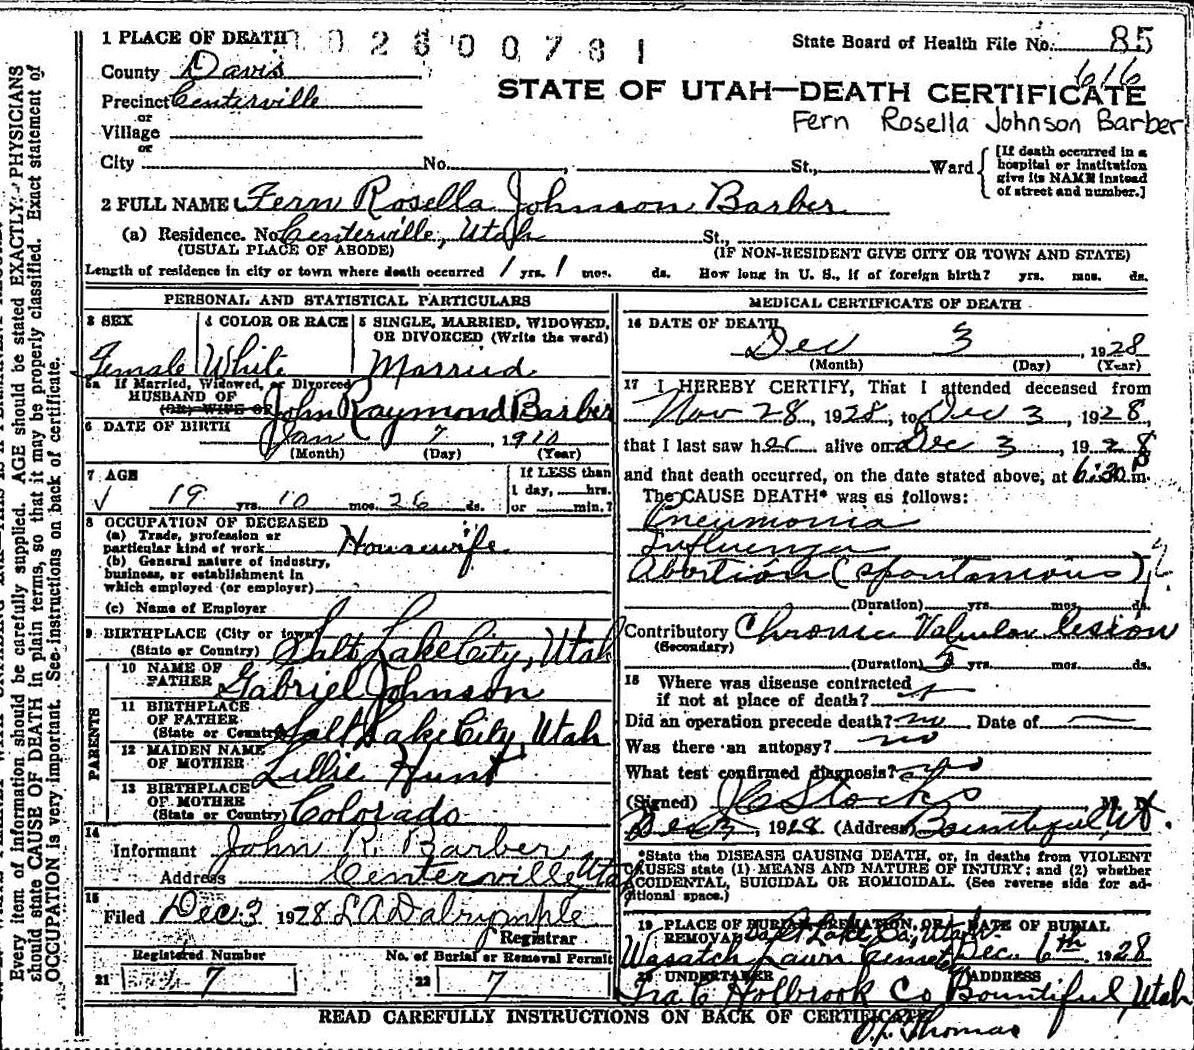 1 PLACE OF DEATH 0 2 8 0 0 7 8 1
State Board of Health File No. 85
616
County Davis
STATE OF UTAH—DEATH CERTIFICATE
Precinct Centerville
Fern Rosella Johnson Barber
or
Village
or
City No. , St., Ward
[If death occurred in a
hospital or institution
give its NAME instead
of street and number.]
2 FULL NAME Fern Rosella Johnson Barber
(a) Residence. No. Centerville, Utah St.,
(USUAL PLACE OF ABODE) (IF NON-RESIDENT GIVE CITY OR TOWN AND STATE)
Length of residence in city or town where death occurred 1 yrs. 1 mos. ds. How long in U. S., if of foreign birth? yrs. mos. ds.
PERSONAL AND STATISTICAL PARTICULARS
3 SEX 4 COLOR OR RACE 5 SINGLE, MARRIED, WIDOWED,
OR DIVORCED (Write the word)
Female White Married
5a If Married, Widowed, or Divorced
HUSBAND OF
(OR) WIFE OF John Raymond Barber
6 DATE OF BIRTH Jan 7, 1910
(Month) (Day) (Year)
7 AGE If LESS than
1 day, hrs.
19 yrs. 10 mos. 26 ds. or min.?
8 OCCUPATION OF DECEASED
(a) Trade, profession or
particular kind of work Housewife
(b) General nature of industry,
business, or establishment in
which employed (or employer)
(c) Name of Employer
9 BIRTHPLACE (City or town)
(State or Country) Salt Lake City, Utah
PARENTS
10 NAME OF
FATHER Gabriel Johnson
11 BIRTHPLACE
OF FATHER
(State or Country) Salt Lake City, Utah
12 MAIDEN NAME
OF MOTHER Lillie Hunt
13 BIRTHPLACE
OF MOTHER
(State or Country) Colorado
14
Informant John R. Barber
Address Centerville Utah
15
Filed Dec 3 1928 L A Dalrymple
Registrar
Registered Number No. of Burial or Removal Permit
21 7 22 7
MEDICAL CERTIFICATE OF DEATH
16 DATE OF DEATH
Dec 3, 1928
(Month) (Day) (Year)
17 I HEREBY CERTIFY, That I attended deceased from
Nov 28, 1928, to Dec 3, 1928,
that I last saw her alive on Dec 3, 1928
and that death occurred, on the date stated above, at 6:30 P m.
The CAUSE DEATH* was as follows:
Pneumonia
Influenza
Abortion (spontanious)
(Duration) yrs. mos. ds.
Contributory Chronic Valvular lesion
(Secondary)
(Duration) 5 yrs. mos. ds.
18 Where was disease contracted
if not at place of death?
Did an operation precede death? no Date of
Was there an autopsy? no
What test confirmed diagnosis?
(Signed) J C Stocks M. D.
Dec 3, 1928 (Address) Bountiful, Ut.
*State the DISEASE CAUSING DEATH, or, in deaths from VIOLENT
CAUSES state (1) MEANS AND NATURE OF INJURY; and (2) whether
ACCIDENTAL, SUICIDAL OR HOMICIDAL. (See reverse side for ad-
ditional space.)
19 PLACE OF BURIAL, CREMATION, OR DATE OF BURIAL
REMOVAL Salt Lake Co, Utah.
Wasatch Lawn Cemetery Dec. 6th 1928
20 UNDERTAKER ADDRESS
Ira C Holbrook Co Bountiful, Utah
READ CAREFULLY INSTRUCTIONS ON BACK OF CERTIFICATE
Thomas
Every item of information should be carefully supplied. AGE should be stated EXACTLY. PHYSICIANS
should state CAUSE OF DEATH in plain terms, so that it may be properly classified. Exact statement of
OCCUPATION is very important. See instructions on back of certificate.